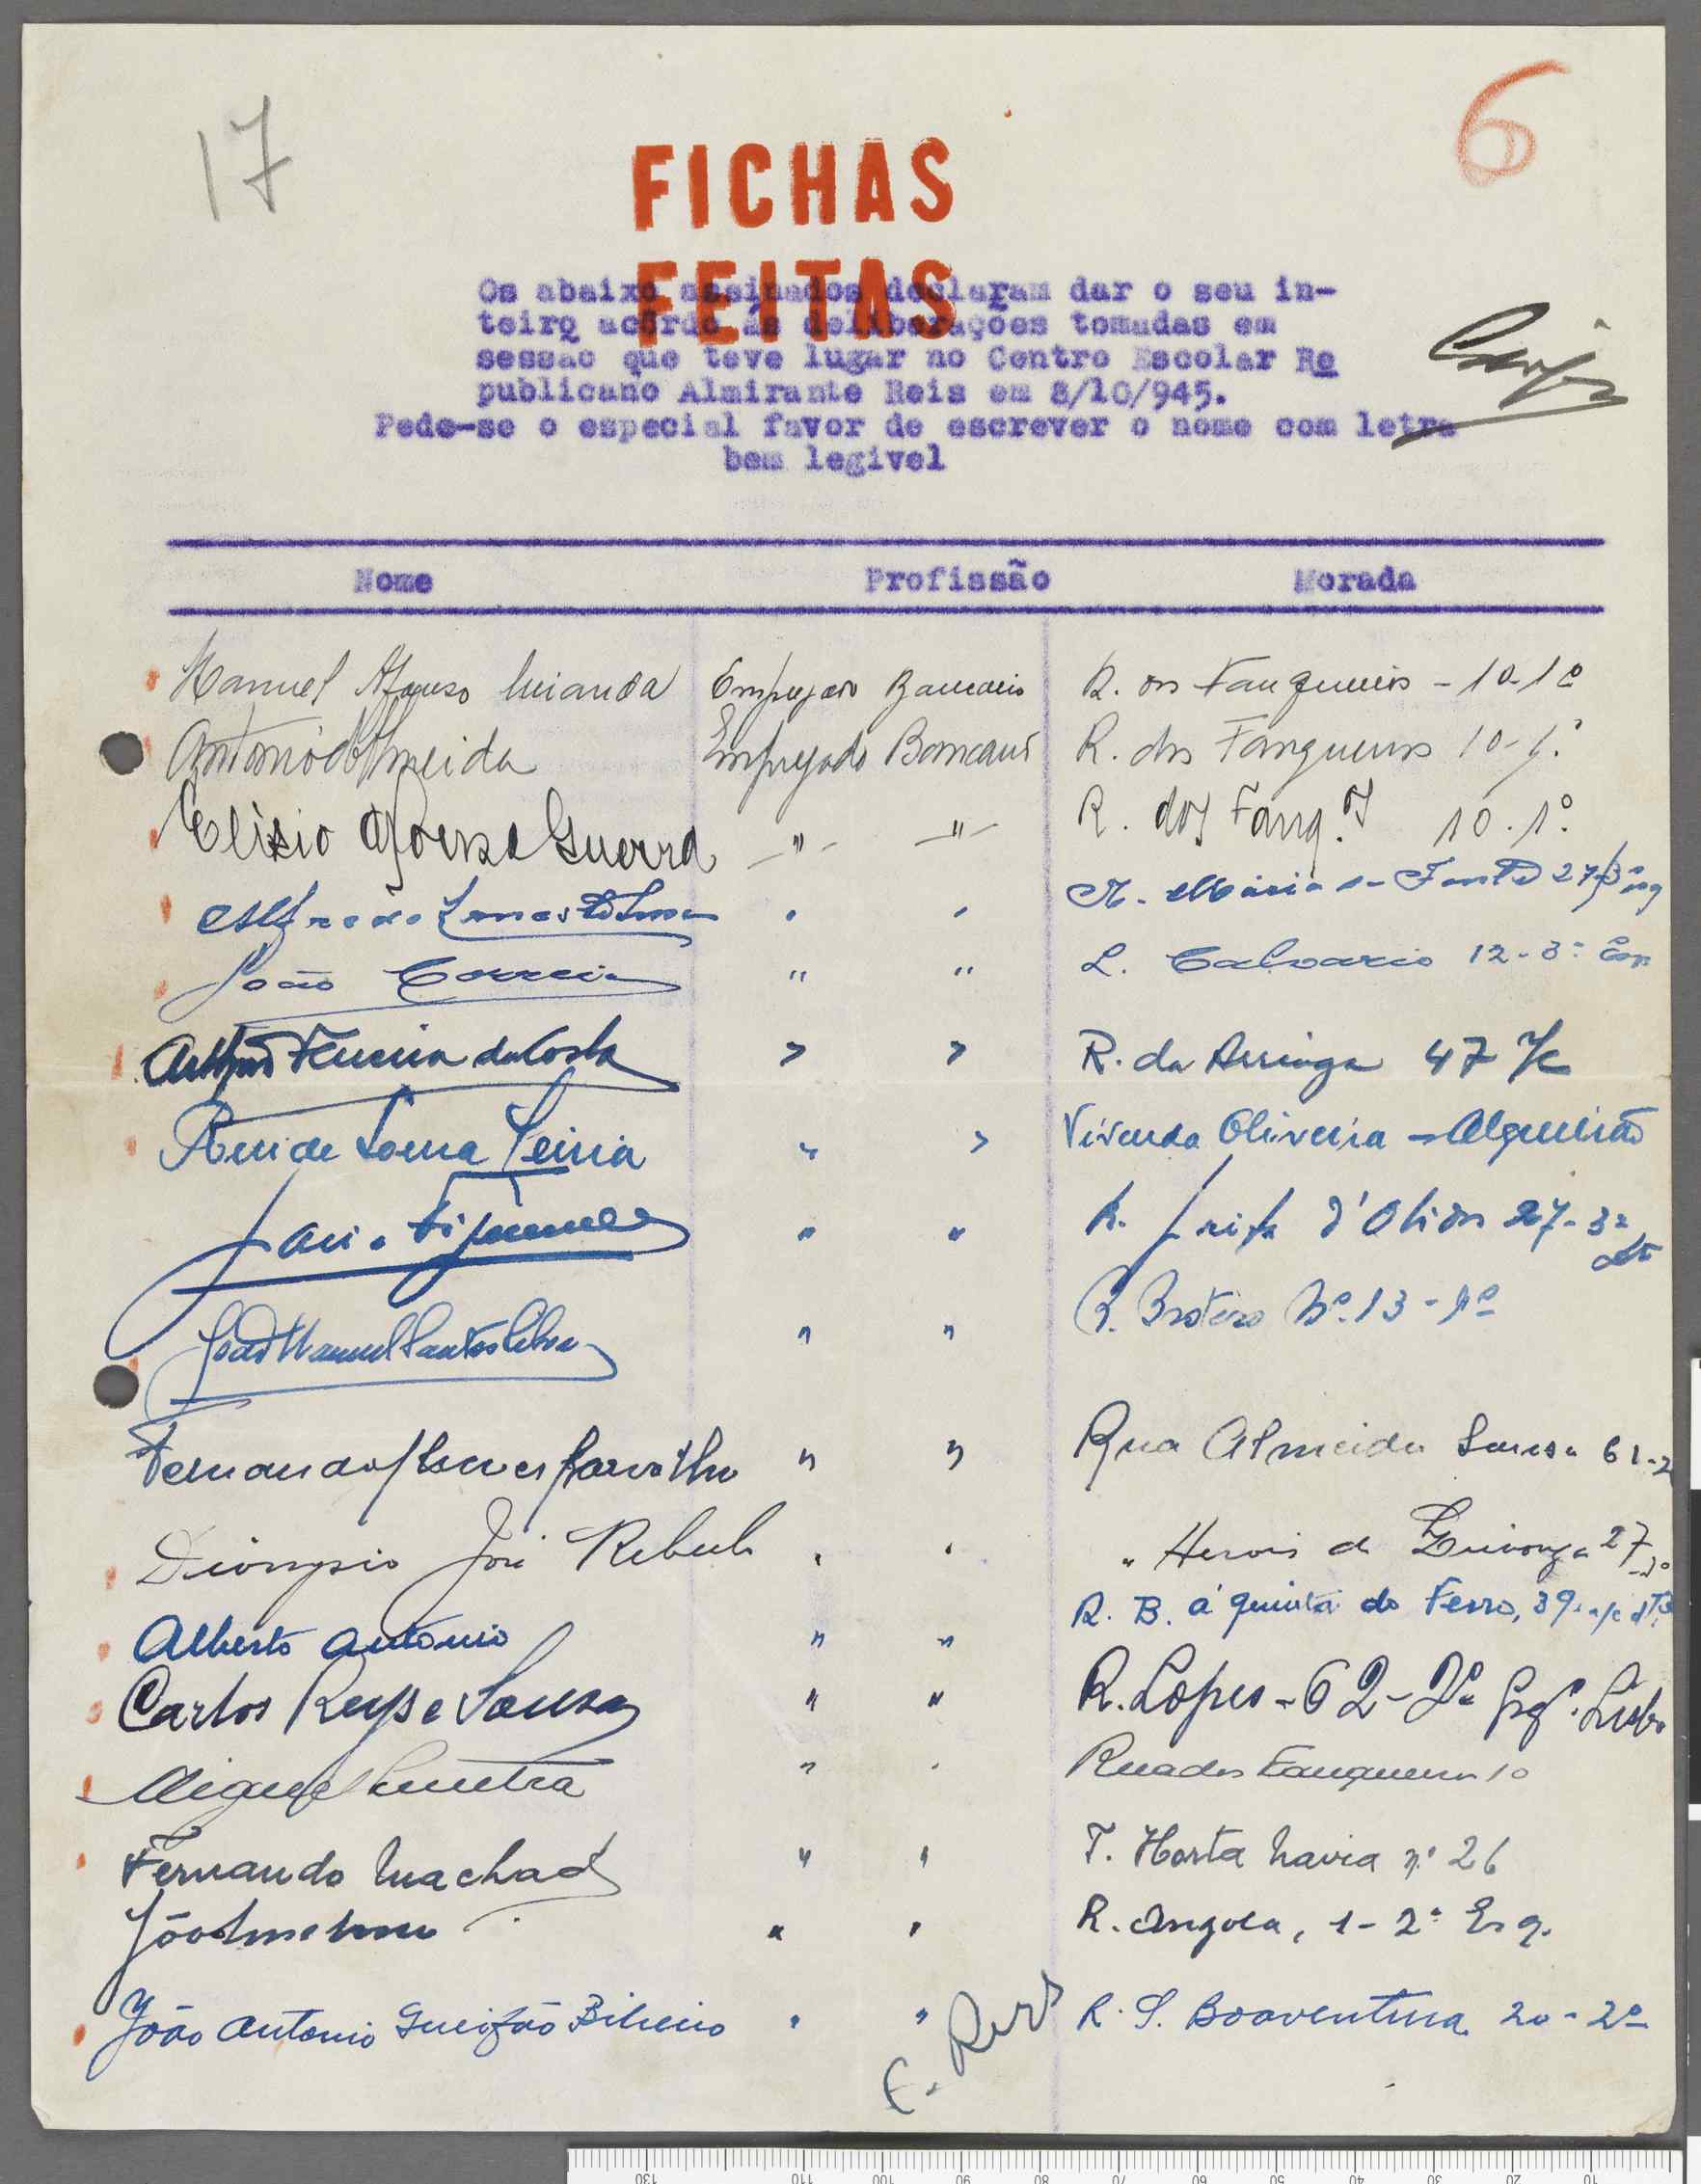 17
6
FICHAS
FEITAS
Os abaixo assinados declaram dar o seu in-
teiro acôrdo ás deliberações tomadas em
sessão que teve lugar no Centro Escolar Re
publicano Almirante Reis em 8/10/945.
Pede-se o especial favor de escrever o nome com letra
bem legivel
Nome Profissão Morada
Manuel Afonso Miranda Empregado Bancario R. dos Fanqueiros - 10-1º
Antonio d'Almeida Empregado Bancario R. dos Fanqueiros 10-1.º
Elisio Afonso Guerra " " R. dos Fanq.os 10.1º.
Alfredo " " R. Maria da Fonte 27
João Correia " " L. Calvario 12-3º Esq
Ferreira da Costa " " R. da Arringa 47 r/c
Rui de Sousa Leiria " " Vivenda Oliveira - Algueirão
" " R. d'Obidos 27-3º dto
João Manuel Santos Silva " " R. Brotero Nº 13-1º
Fernando Carvalho " " Rua Almeida Sousa 61-2
Dionysio José " " " Herois de Quionga 27
Alberto Antonio " " R. B. á quinta do Ferro, 39 r/c dto
Carlos Reys e Sousa " " R. Lopes - 62-2º Esqº. Lisboa
Miguel Cintra " " Rua dos Fanqueiros 10
Fernando Machado " " T. Horta Navia nº 26
" " R. Angola, 1-2º Esq.
João Antonio Gueifão Bilreiro " " R. S. Boaventura 20-2º